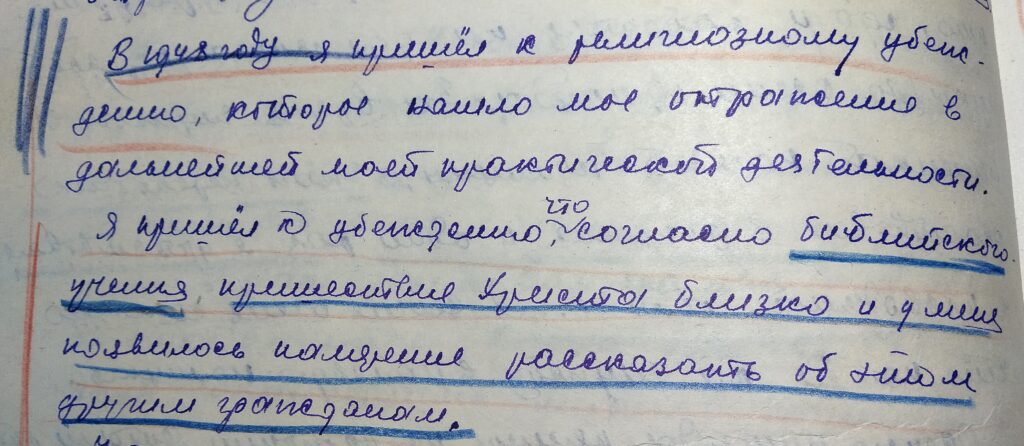 В 1948 году я пришёл к религиозному убеж-
дению, которое нашло мое отражение в
дальнейшей моей практической деятельности.
Я пришёл к убеждению, что согласно библийского
учения, пришествие Христа близко и у меня
появилось намерение рассказать об этом
другим гражданам.